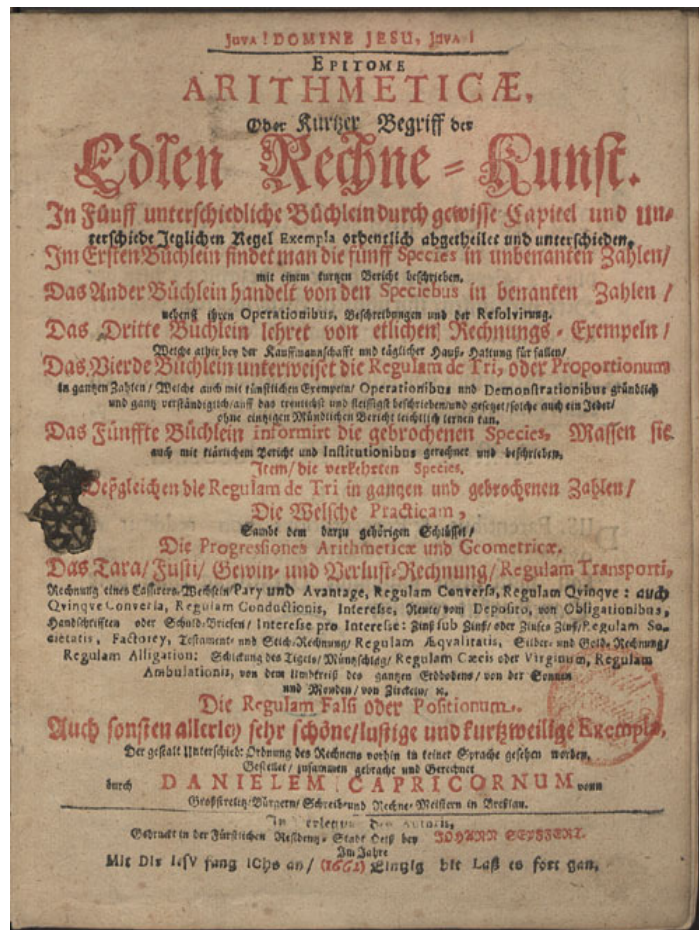 JUVA! DOMINE JESU, JUVA!
EPITOME
ARITHMETICÆ,
Oder Kurtzer Begriff der
Edlen Rechne-Kunst.
In Fünff unterschiedliche Büchlein durch gewisse Capitel und Un-
terschiede Jeglichen Regel Exempla ordentlich abgetheilet und unterschieden.
Im Ersten Büchlein findet man die fünff Species in unbenanten Zahlen/
mit einem kurtzen Bericht beschrieben.
Das Ander Büchlein handelt von den Speciebus in benanten Zahlen/
nebenst ihren Operationibus, Beschreibungen und der Resolvirung.
Das Dritte Büchlein lehret von etlichen Rechnungs-Exempeln/
Welche alhier bey der Kauffmannschafft und täglicher Hauß-Haltung für fallen/
Das Vierde Büchlein unterweiset die Regulam de Tri, oder Proportionum
in gantzen Zahlen/ Welche auch mit künstlichen Exempeln/ Operationibus und Demonstrationibus gründlich
und gantz verständiglich/ auff das treulichst und fleissigst beschrieben/ und gesetzet/ solche auch ein Jeder/
ohne eintzigen Mündlichen Bericht leichtlich lernen kan.
Das Fünffte Büchlein informirt die gebrochenen Species, Massen sie
auch mit klärlichem Bericht und Institutionibus gerechnet und beschrieben,
Item/ die verkehrten Species.
Deßgleichen die Regulam de Tri in gantzen und gebrochenen Zahlen/
Die Welsche Practicam,
Sambt dem darzu gehörigen Schlüssel/
Die Progressiones Arithmeticæ und Geometricæ.
Das Tara/ Fusti/ Gewin- und Verlust-Rechnung/ Regulam Transporti,
Rechnung eines Cassirers, Wechseln/ Pary und Avantage, Regulam Conversa, Regulam Qvinqve: auch
Qvinqve Conversa, Regulam Conductionis, Interesse, Rente/ vom Deposito, von Obligationibus,
Handschrifften oder Schuld-Briefen/ Interesse pro Interesse: Zinß sub Zinß/ oder Zinses Zinß/ Regulam So-
cietatis, Factorey, Testament- und Stich-Rechnung/ Regulam Æqvalitatis, Silber- und Gold-Rechnung/
Regulam Alligation: Schickung des Tigels/ Müntzschlag/ Regulam Cæcis oder Virginum, Regulam
Ambulationis, von dem Umbkreiß des gantzen Erdbodens/ von der Sonnen
und Monden/ von Zirckeln/ ꝛc.
Die Regulam Falsi oder Positionum.
Auch sonsten allerley sehr schöne/ lustige und kurtzweilige Exempla,
Der gestalt Unterschied: Ordnung des Rechnens vorhin in keiner Sprache gesehen worden.
Gestellet/ zusammen gebracht und Gerechnet
durch DANIELEM CAPRICORNUM vonn
Großstrelitz/ Bürgern/ Schreib- und Rechne-Meistern in Breßlau.
In Verlegung des Autoris,
Gedruckt in der Fürstlichen Residentz-Stadt Oelß bey JOHANN SEYFFERT.
Im Jahre
Mit DIr IesV fang ICHs an/ (1662) EIntzIg DIr Laß es fort gan,